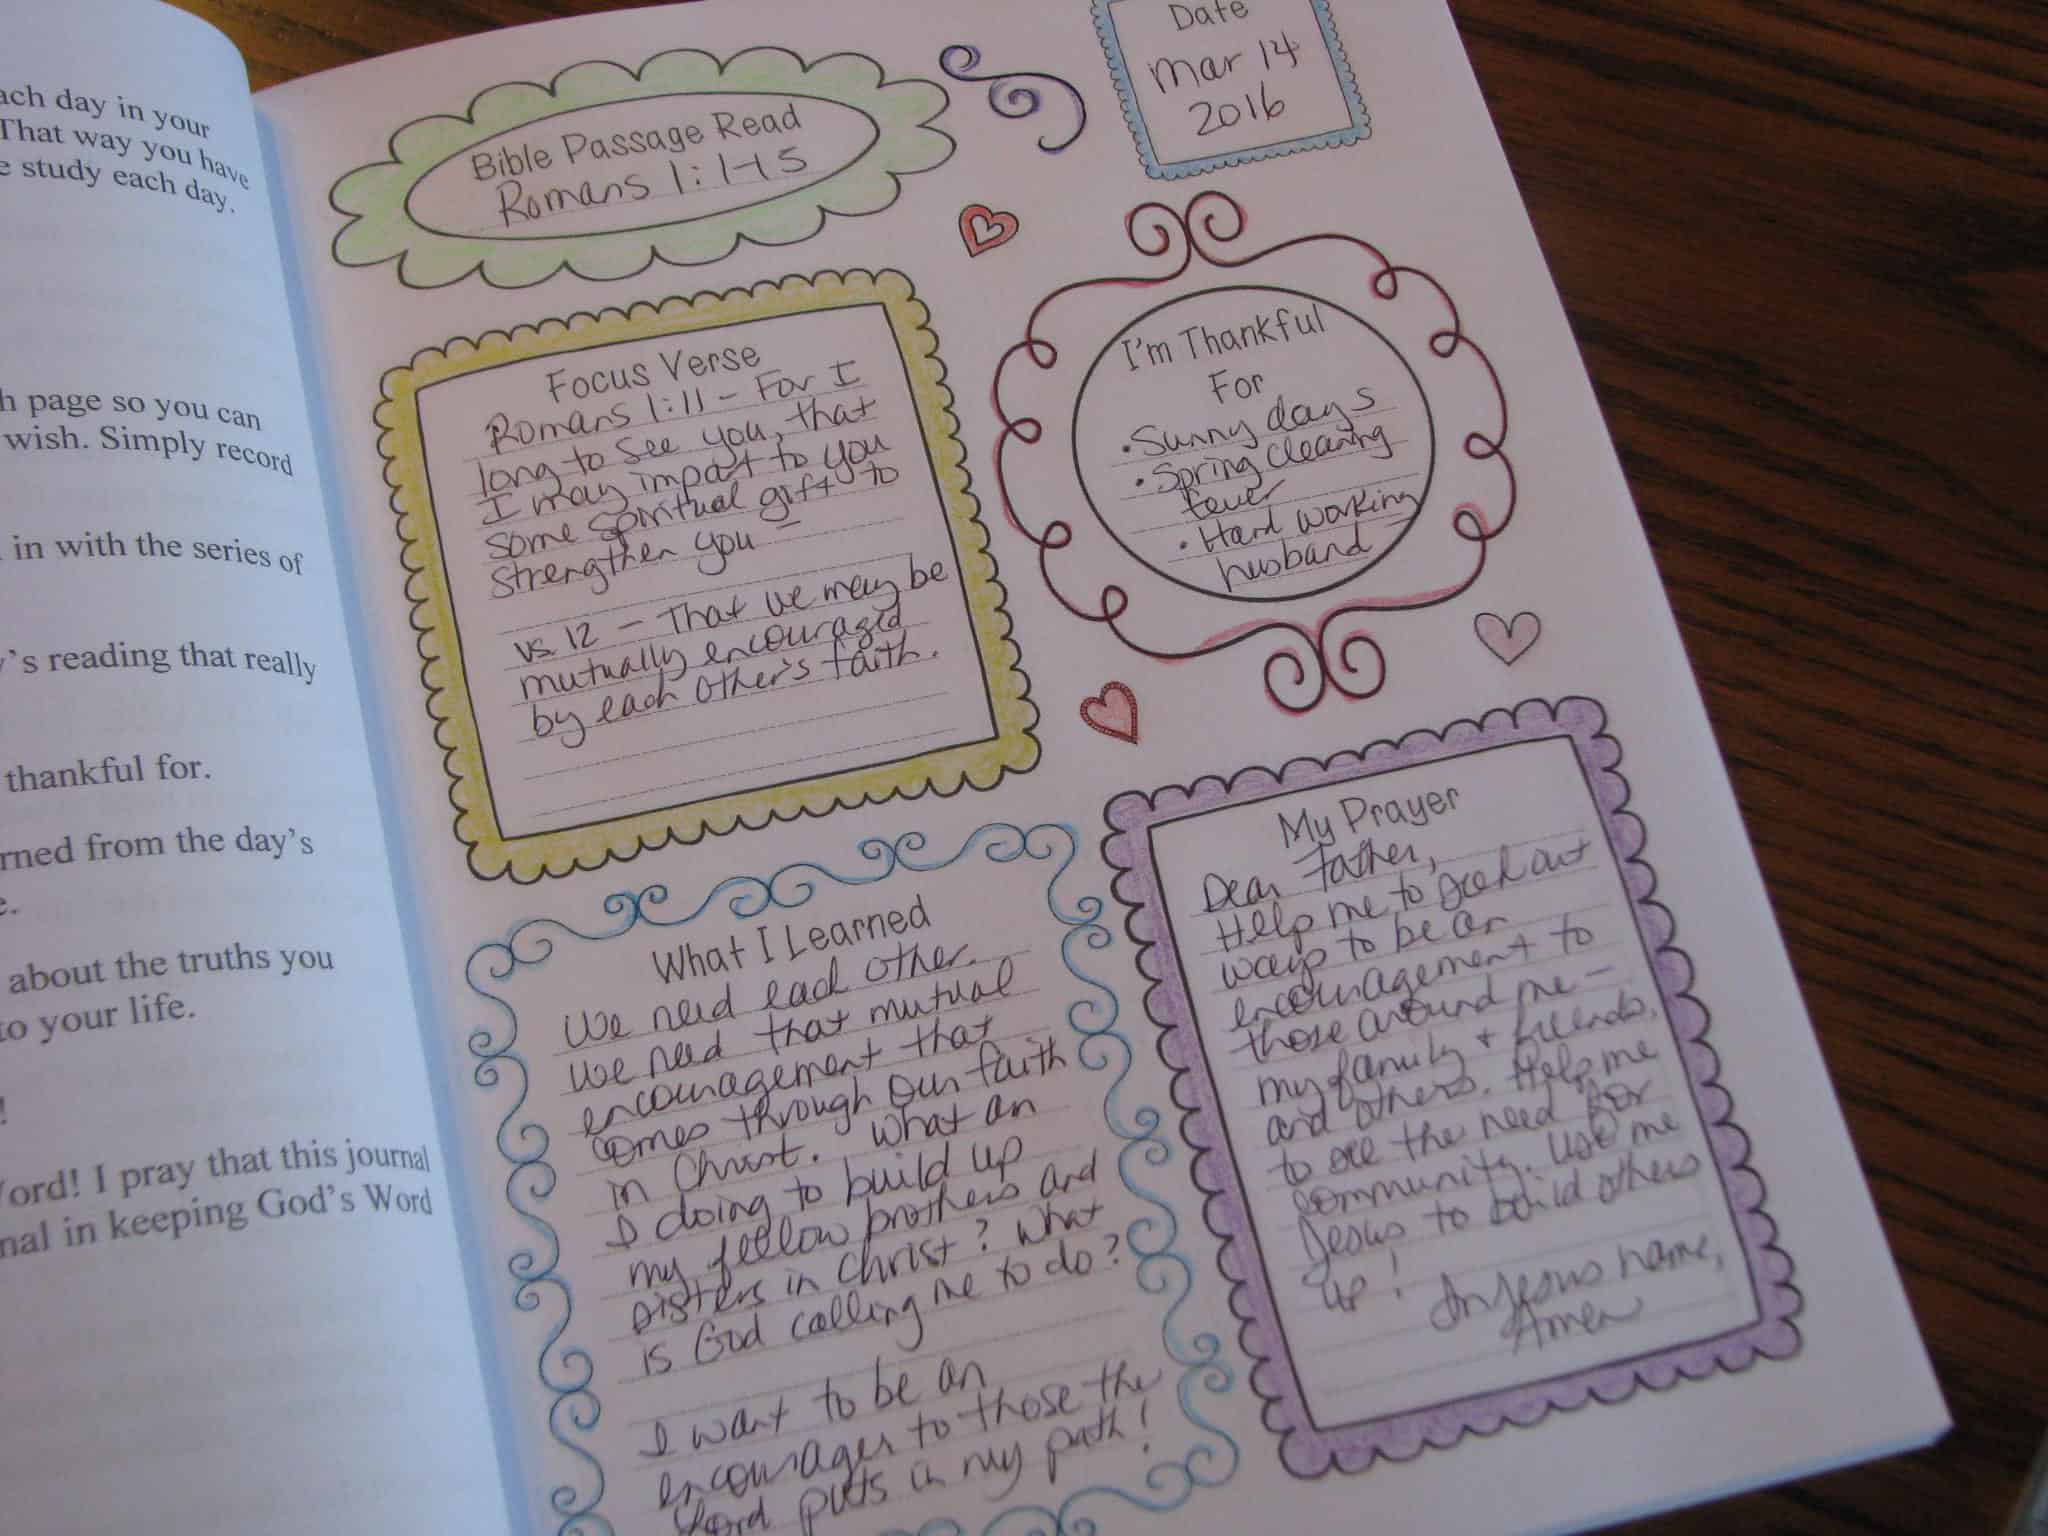 ach day in your
That way you have
e study each day.
h page so you can
wish. Simply record
in with the series of
y's reading that really
thankful for.
rned from the day's
e.
about the truths you
to your life.
!
Word! I pray that this journal
nal in keeping God's Word
Bible Passage Read
Romans 1:1-15
Date
Mar 14
2016
Focus Verse
Romans 1:11 - For I
long to see you, that
I may impart to you
some spiritual gift to
strengthen you -
vs. 12 - That we may be
mutually encouraged
by each other's faith.
I'm Thankful
For
• Sunny days
• Spring cleaning
fever
• Hard working
husband
What I Learned
We need each other.
We need that mutual
encouragement that
comes through our faith
in Christ. What an
I doing to build up
my fellow brothers and
sisters in Christ? What
is God calling me to do?
I want to be an
encourager to those the
Lord puts in my path!
My Prayer
Dear Father,
Help me to seek out
ways to be an
encouragement to
those around me -
my family + friends,
and others. Help me
to see the need for
community. Use me
Jesus to build others
up! In Jesus name,
Amen